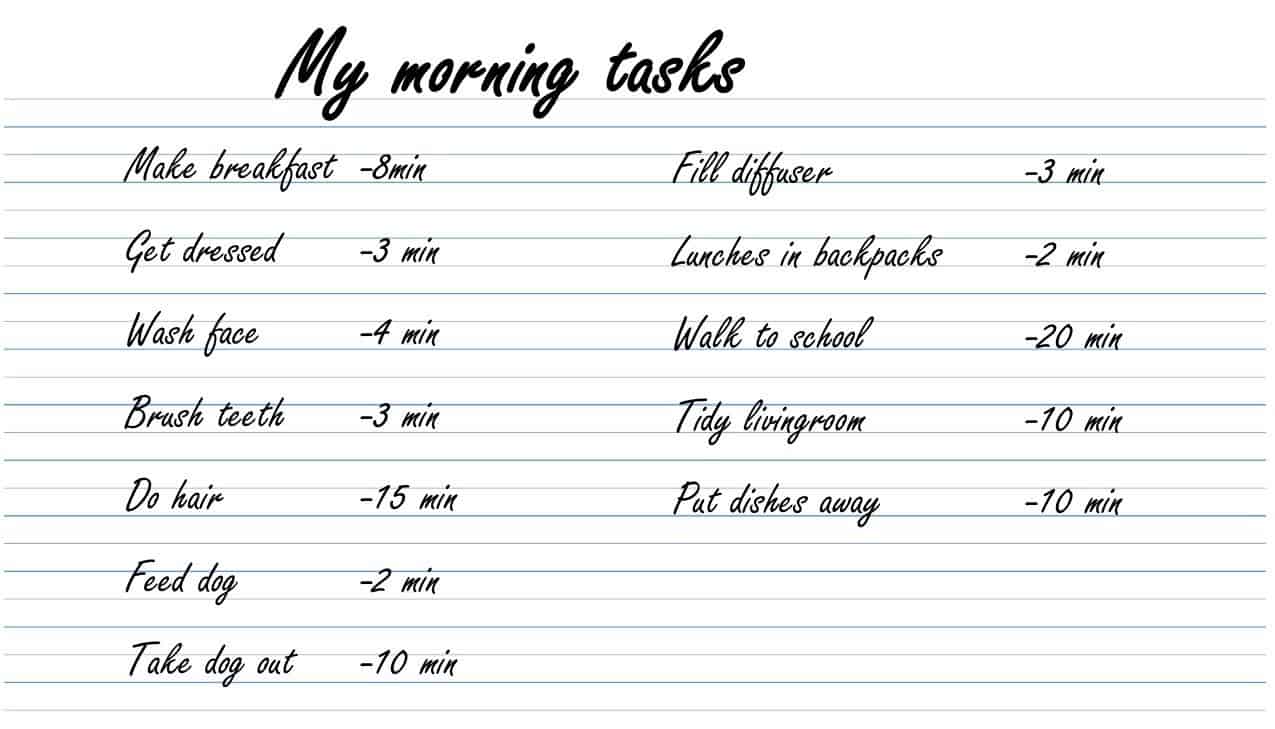 My morning tasks
Make breakfast -8min
Get dressed -3 min
Wash face -4 min
Brush teeth -3 min
Do hair -15 min
Feed dog -2 min
Take dog out -10 min
Fill diffuser -3 min
Lunches in backpacks -2 min
Walk to school -20 min
Tidy livingroom -10 min
Put dishes away -10 min